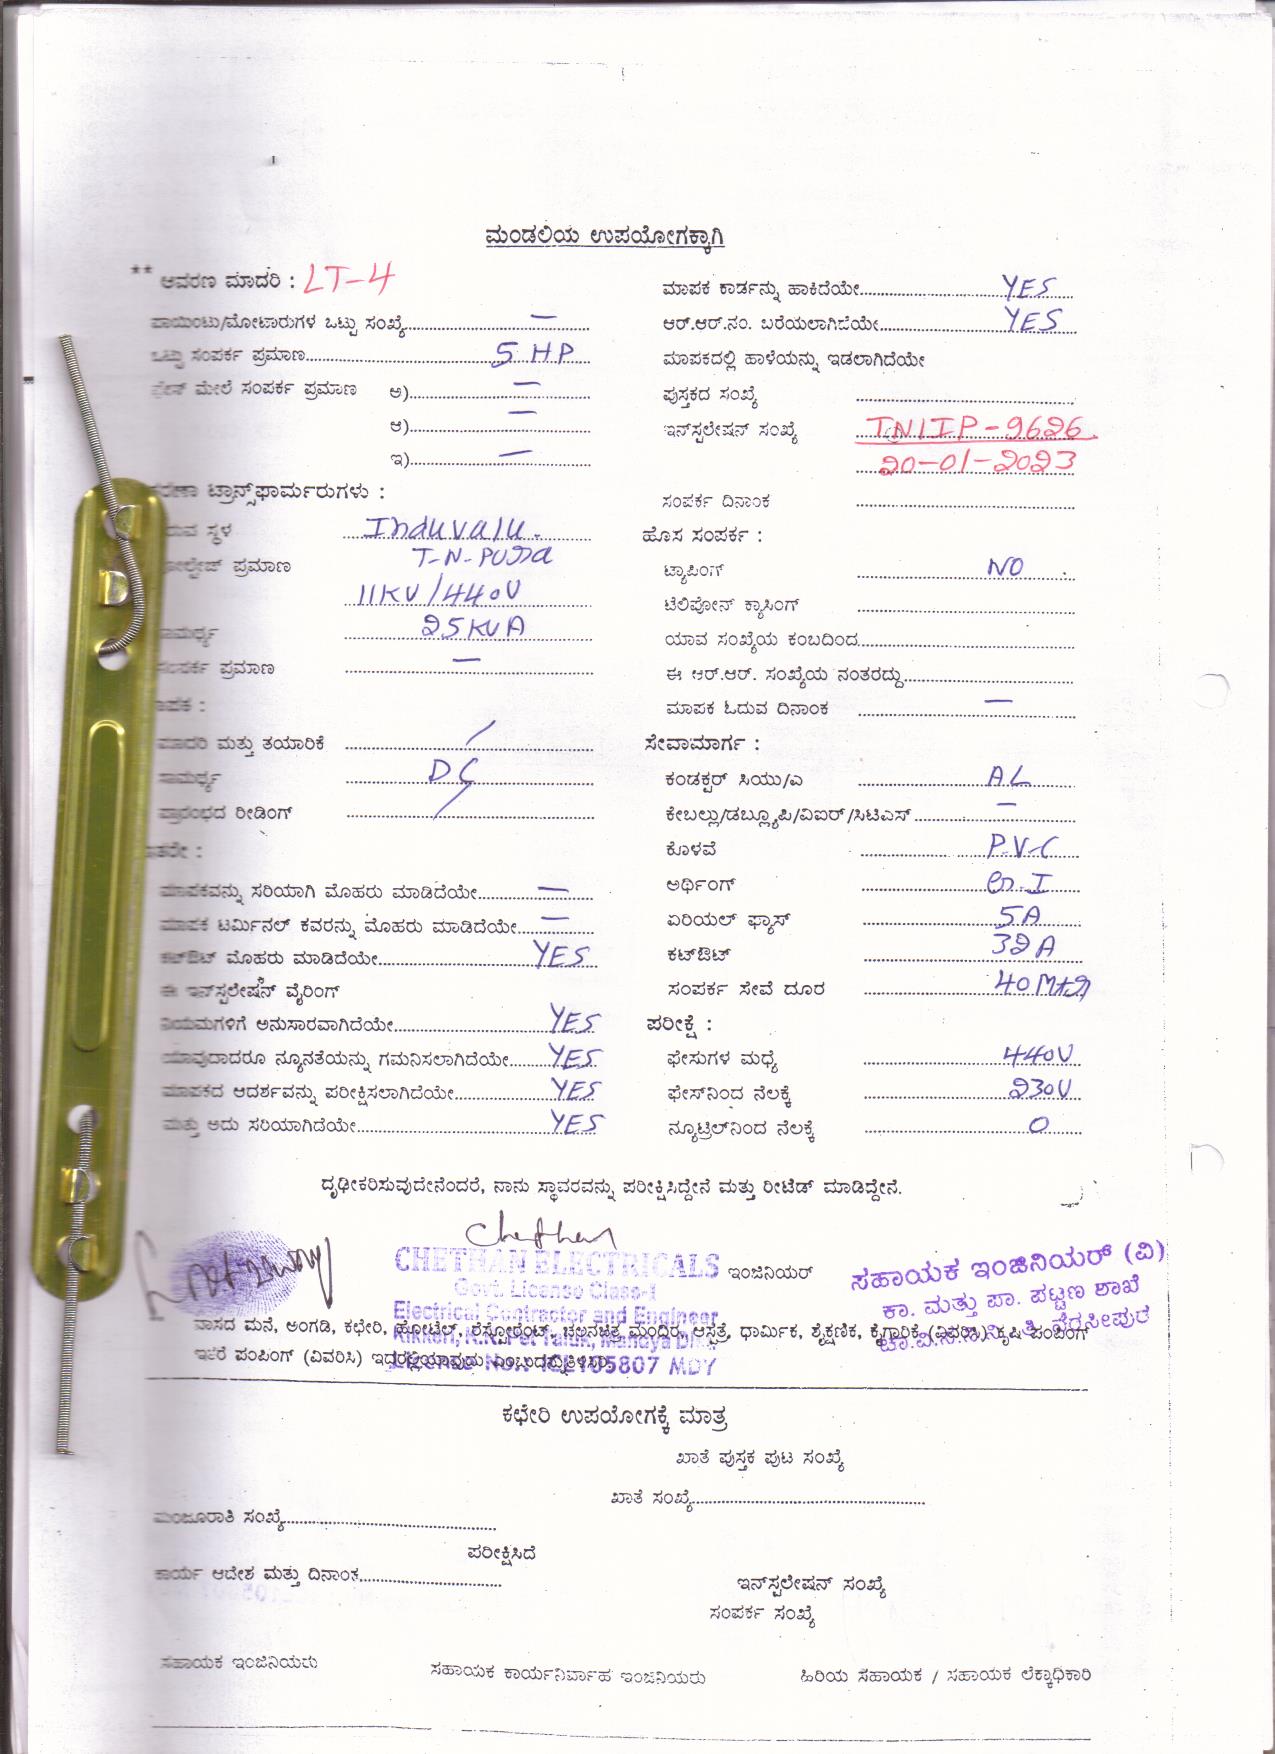 ಮಂಡಲಿಯ ಉಪಯೋಗಕ್ಕಾಗಿ
** ಆವರಣ ಮಾದರಿ : LT-4
ಪಾಯಿಂಟು/ಮೋಟಾರುಗಳ ಒಟ್ಟು ಸಂಖ್ಯೆ..........—
ಒಟ್ಟು ಸಂಪರ್ಕ ಪ್ರಮಾಣ..........5 HP
ಮೇಲೆ ಸಂಪರ್ಕ ಪ್ರಮಾಣ ಅ)..........—
ಆ)..........—
ಇ)..........—
ಟ್ರಾನ್ಸ್‌ಫಾರ್ಮರುಗಳು :
ಸ್ಥಳ ..........Induvalu.
T-N-Pura
ಪ್ರಮಾಣ
11KV/440V
ಸಾಮರ್ಥ್ಯ ..........25KVA
ಸಂಪರ್ಕ ಪ್ರಮಾಣ ..........—
ಮಾದರಿ ಮತ್ತು ತಯಾರಿಕೆ ..........
ಸಾಮರ್ಥ್ಯ ..........DC
ಪ್ರಾರಂಭದ ರೀಡಿಂಗ್ ..........
ಮಾಪಕವನ್ನು ಸರಿಯಾಗಿ ಮೊಹರು ಮಾಡಿದೆಯೇ..........—
ಮಾಪಕ ಟರ್ಮಿನಲ್ ಕವರನ್ನು ಮೊಹರು ಮಾಡಿದೆಯೇ..........—
ಕಟ್‌ಔಟ್ ಮೊಹರು ಮಾಡಿದೆಯೇ..........YES
ಈ ಇನ್‌ಸ್ಟಲೇಷನ್ ವೈರಿಂಗ್
ನಿಯಮಗಳಿಗೆ ಅನುಸಾರವಾಗಿದೆಯೇ..........YES
ಯಾವುದಾದರೂ ನ್ಯೂನತೆಯನ್ನು ಗಮನಿಸಲಾಗಿದೆಯೇ..........YES
ಮಾಪಕದ ಆದರ್ಶವನ್ನು ಪರೀಕ್ಷಿಸಲಾಗಿದೆಯೇ..........YES
ಮತ್ತು ಅದು ಸರಿಯಾಗಿದೆಯೇ..........YES
ಮಾಪಕ ಕಾರ್ಡನ್ನು ಹಾಕಿದೆಯೇ..........YES
ಆರ್.ಆರ್.ನಂ. ಬರೆಯಲಾಗಿದೆಯೇ..........YES
ಮಾಪಕದಲ್ಲಿ ಹಾಳೆಯನ್ನು ಇಡಲಾಗಿದೆಯೇ
ಪುಸ್ತಕದ ಸಂಖ್ಯೆ ..........
ಇನ್‌ಸ್ಟಲೇಷನ್ ಸಂಖ್ಯೆ TNIIP-9626
20-01-2023
ಸಂಪರ್ಕ ದಿನಾಂಕ ..........
ಹೊಸ ಸಂಪರ್ಕ :
ಟ್ಯಾಪಿಂಗ್ ..........NO
ಟೆಲಿಪೋನ್ ಕ್ರಾಸಿಂಗ್ ..........
ಯಾವ ಸಂಖ್ಯೆಯ ಕಂಬದಿಂದ..........
ಈ ಆರ್.ಆರ್. ಸಂಖ್ಯೆಯ ನಂತರದ್ದು..........
ಮಾಪಕ ಓದುವ ದಿನಾಂಕ ..........—
ಸೇವಾಮಾರ್ಗ :
ಕಂಡಕ್ಟರ್ ಸಿಯು/ಎ ..........AL
ಕೇಬಲ್ಲು/ಡಬ್ಲ್ಯೂಪಿ/ವಿಐಆರ್/ಸಿಟಿಎಸ್..........—
ಕೊಳವೆ ..........P.V-C
ಅರ್ಥಿಂಗ್ ..........G.I
ಏರಿಯಲ್ ಫ್ಯೂಸ್ ..........5A
ಕಟ್‌ಔಟ್ ..........32A
ಸಂಪರ್ಕ ಸೇವೆ ದೂರ ..........40Mtr
ಪರೀಕ್ಷೆ :
ಫೇಸುಗಳ ಮಧ್ಯೆ ..........440V
ಫೇಸ್‌ನಿಂದ ನೆಲಕ್ಕೆ ..........230V
ನ್ಯೂಟ್ರಲ್‌ನಿಂದ ನೆಲಕ್ಕೆ ..........0
ದೃಢೀಕರಿಸುವುದೇನೆಂದರೆ, ನಾನು ಸ್ಥಾವರವನ್ನು ಪರೀಕ್ಷಿಸಿದ್ದೇನೆ ಮತ್ತು ರೀಟೆಡ್ ಮಾಡಿದ್ದೇನೆ.
Chethan
CHETHAN ELECTRICALS ಇಂಜಿನಿಯರ್
Govt. License Class-I
Electrical Contractor and Engineer
Kikkeri, K.R.Pet Taluk, Mandya Dist
License No.: 1CL105807 MDY
ಸಹಾಯಕ ಇಂಜಿನಿಯರ್ (ವಿ)
ಕಾ. ಮತ್ತು ಪಾ. ಪಟ್ಟಣ ಶಾಖೆ
ವಾಸದ ಮನೆ, ಅಂಗಡಿ, ಕಛೇರಿ, ಹೋಟೆಲ್, ರೆಸ್ಟೋರೆಂಟ್, ಚಲನಚಿತ್ರ ಮಂದಿರ, ಆಸ್ಪತ್ರೆ, ಧಾರ್ಮಿಕ, ಶೈಕ್ಷಣಿಕ, ಕೈಗಾರಿಕೆ (ವಿವರಿಸಿ) ಕೃಷಿ ಪಂಪಿಂಗ್
ಇತರೆ ಪಂಪಿಂಗ್ (ವಿವರಿಸಿ) ಇದರಲ್ಲಿಯಾವುದು ಎಂಬುದನ್ನು ತಿಳಿಸಿರಿ.
ಕಛೇರಿ ಉಪಯೋಗಕ್ಕೆ ಮಾತ್ರ
ಖಾತೆ ಪುಸ್ತಕ ಪುಟ ಸಂಖ್ಯೆ
ಖಾತೆ ಸಂಖ್ಯೆ..........
ಮಂಜೂರಾತಿ ಸಂಖ್ಯೆ..........
ಪರೀಕ್ಷಿಸಿದೆ
ಕಾರ್ಯ ಆದೇಶ ಮತ್ತು ದಿನಾಂಕ..........
ಇನ್‌ಸ್ಟಲೇಷನ್ ಸಂಖ್ಯೆ
ಸಂಪರ್ಕ ಸಂಖ್ಯೆ
ಸಹಾಯಕ ಇಂಜಿನಿಯರು ಸಹಾಯಕ ಕಾರ್ಯನಿರ್ವಾಹ ಇಂಜಿನಿಯರು ಹಿರಿಯ ಸಹಾಯಕ / ಸಹಾಯಕ ಲೆಕ್ಕಾಧಿಕಾರಿ